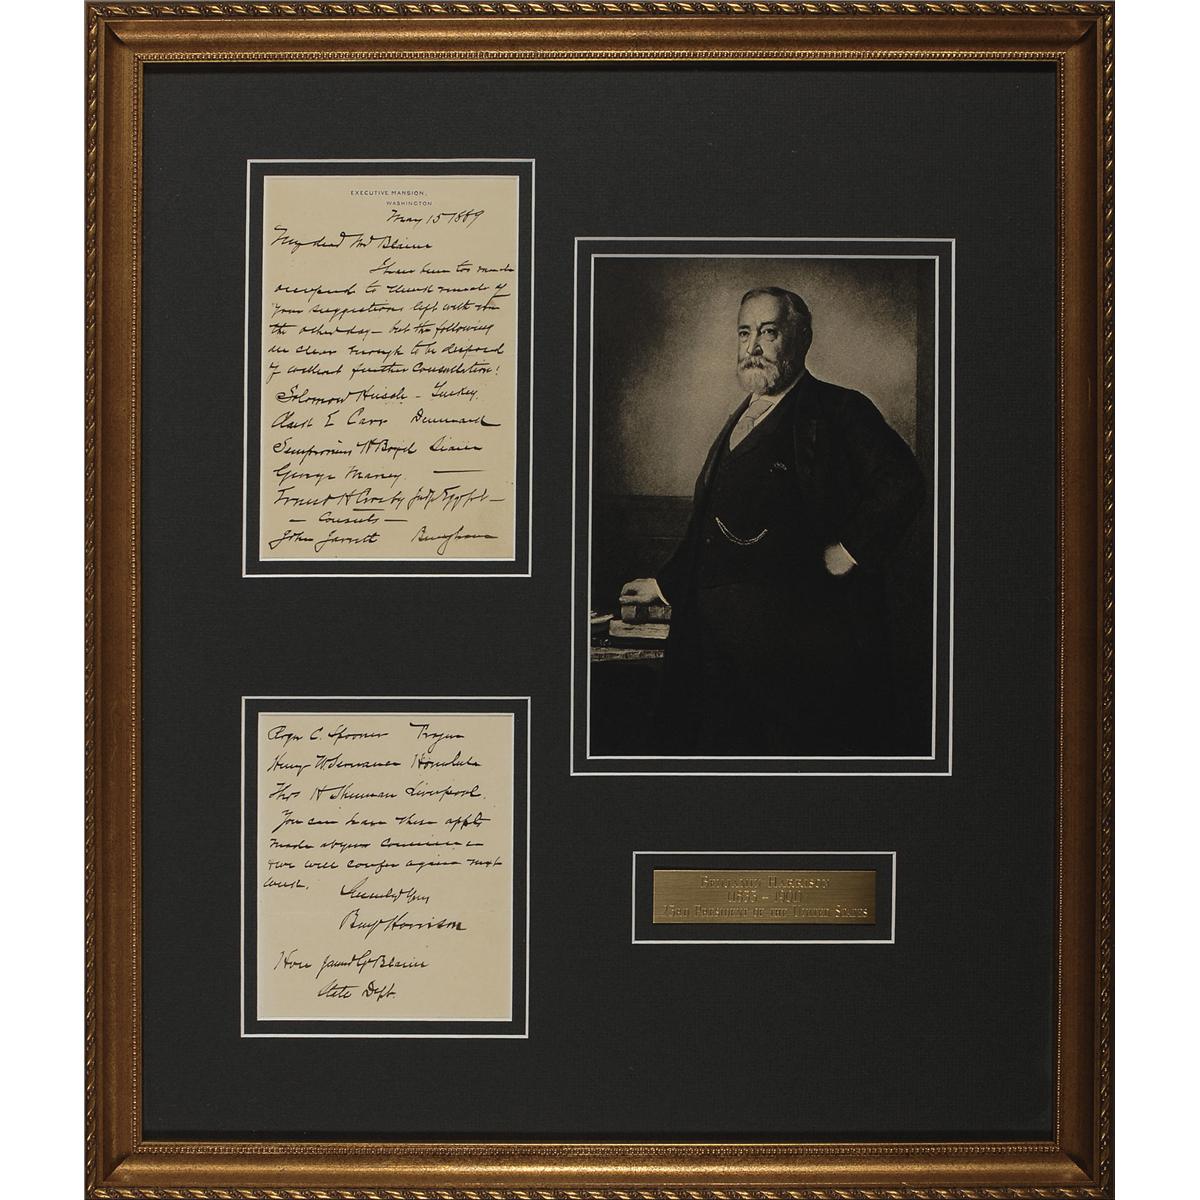 EXECUTIVE MANSION,
WASHINGTON
May 15 1889
My dear Mr Blaine
I have been too much
occupied to think much of
your suggestions left with me
the other day - but the following
are clear enough to be disposed
of without further Consultation:
Solomon Hirsch - Turkey.
Clark E Carr Denmark
Sempronius H Boyd Siam
George Maney —
Ernest H Crosby Judge Egypt -
- Consuls -
John Jarrett Birmgham
Roger C. Spooner Prague
Henry W Severance Honolulu
Thos H Sherman Liverpool.
You can have these appts
made at your convenience
& we will confer again next
week.
Sincerely Yours
Benj Harrison
Hon James G Blaine
State Dept.
BENJAMIN HARRISON
(1833 - 1901)
23RD PRESIDENT OF THE UNITED STATES